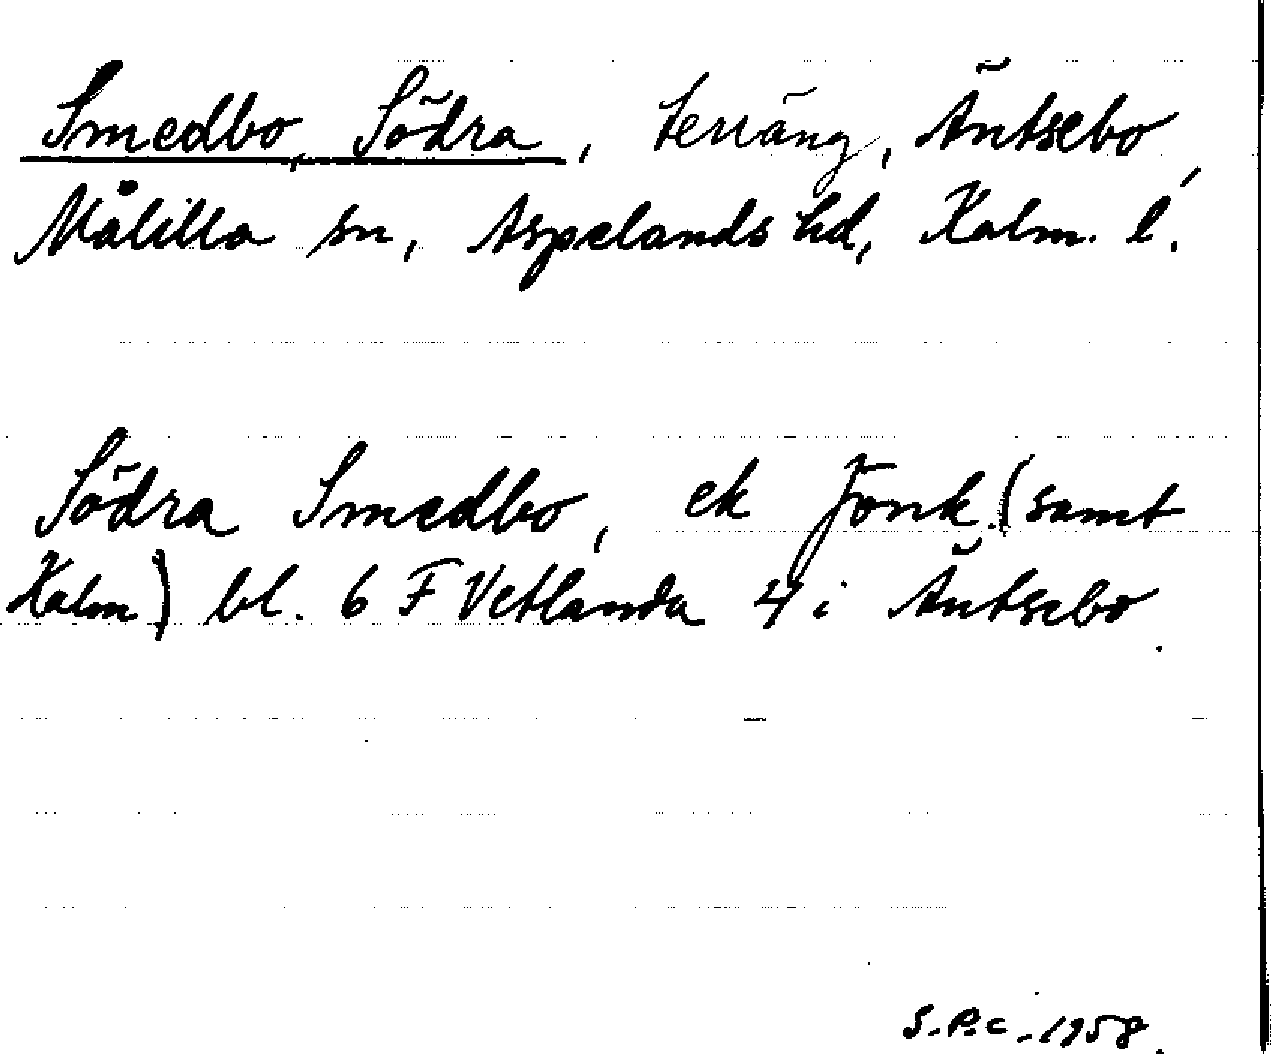 Smedbo, Södra, terräng, Äntsebo,
Målilla sn, Aspelands hd, Kalm. l.
Södra Smedbo, ek Jönk. (samt
Kalm) bl. 6 F Vetlanda 4 i Äntsebo.
S.P.C. 1958.